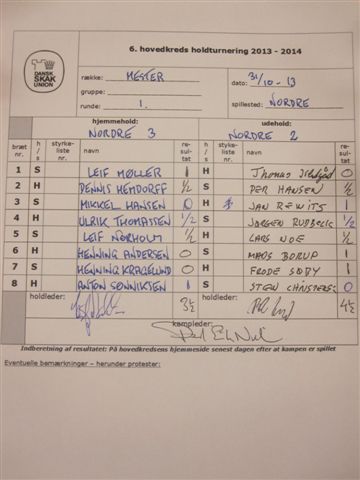 6. hovedkreds holdturnering 2013 - 2014
DANSK
SKAK
UNION
række: MESTER
dato: 31/10-13
gruppe:
runde: 1.
spillested: NORDRE
hjemmehold: udehold:
NORDRE 3 NORDRE 2
bræt nr. h / s styrkeliste nr. navn resultat h / s styrkeliste nr. navn resultat
1 S LEIF MØLLER 1 H Thomas 0
2 H DENNIS HEMDORFF ½ S PER HANSEN ½
3 S MIKKEL HANSEN 0 H JAN REWITS 1
4 H ULRIK THOMASSEN 1/2 S JØRGEN RUDBECK 1/2
5 S LEIF NØRHOLM ½ H LARS NOE ½
6 H HENNING ANDERSEN 0 S MADS BORUP 1
7 S HENNING KRAGELUND 0 H FRODE SØBY 1
8 H ANTON SØNNIKSEN 1 S STEEN CHRISTENS: 0
holdleder: 3½ holdleder: 4½
kampleder:
Indberetning af resultatet: På hovedkredsens hjemmeside senest dagen efter at kampen er spillet
Eventuelle bemærkninger – herunder protester: